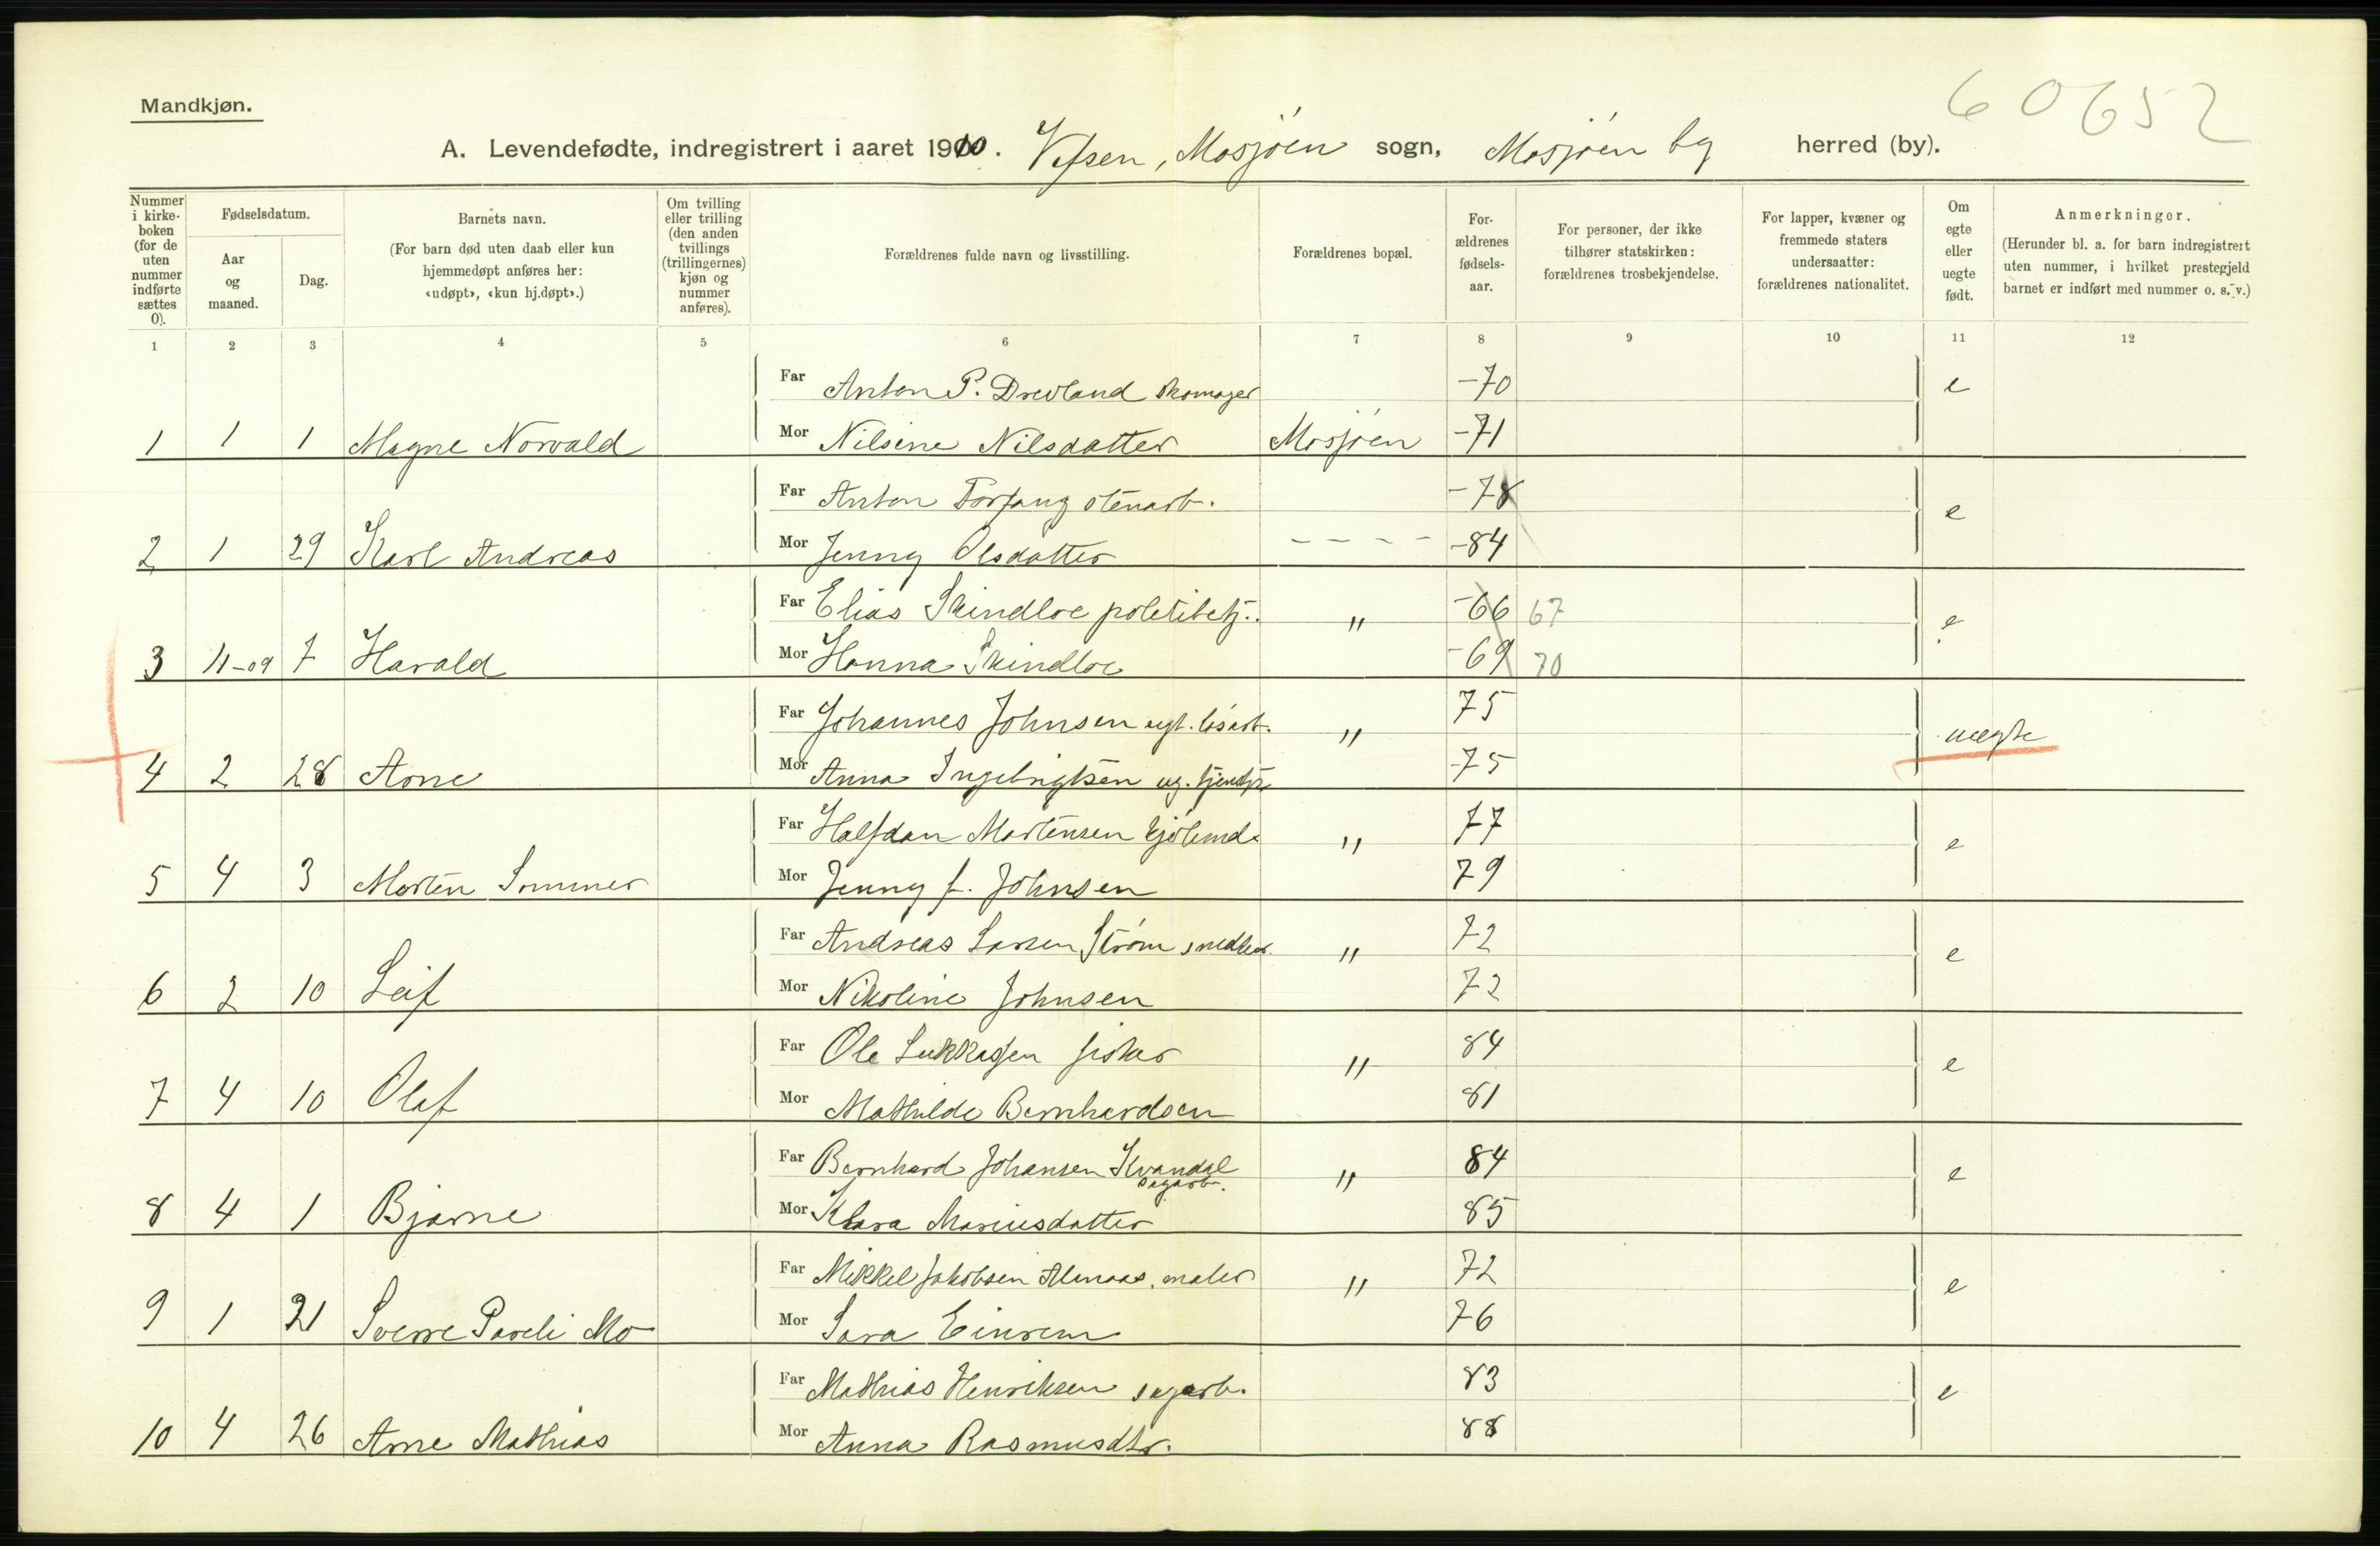 60652
Mandkjøn.
A. Levendefødte, indregistrert i aaret 1910. Vefsen, Mosjöen sogn, Mosjöen by herred (by).
Nummer i kirke-boken (for de uten nummer indførte sættes 0).
Fødselsdatum.
Aar og maaned.
Dag.
Barnets navn.
(For barn død uten daab eller kun hjemmedøpt anføres her: «udøpt», «kun hj.døpt».)
Om tvilling eller trilling (den anden tvillings (trillingernes) kjøn og nummer anføres).
Forældrenes fulde navn og livsstilling.
Forældrenes bopæl.
For-ældrenes fødsels-aar.
For personer, der ikke tilhører statskirken: forældrenes trosbekjendelse.
For lapper, kvæner og fremmede staters undersaatter: forældrenes nationalitet.
Om egte eller uegte født.
Anmerkninger.
(Herunder bl. a. for barn indregistrert uten nummer, i hvilket prestegjeld barnet er indført med nummer o. s. v.)
1 2 3 4 5 6 7 8 9 10 11 12
Far Anton P. Drevland skomager -70 e
1 1 1 Magne Norvald Mor Nilsine Nilsdatter Mosjöen -71
Far Anton Forfang stenarb. -78 e
2 1 29 Karl Andreas Mor Jenny Olsdatter - - - - -84
Far Elias Skindloe politibetj. " -66 67 e
3 11-09 7 Harald Mor Hanna Skindloe -69 70
Far Johannes Johnsen ugt. lösarb. " 75 uegte
4 2 28 Arne Mor Anna Ingebrigtsen ug. tjenestp. 75
Far Halfdan Mortensen kjöbmd. " 77 e
5 4 3 Morten Sommer Mor Jenny f. Johnsen 79
Far Andreas Larsen Ström snedker " 72 e
6 2 10 Leif Mor Nikoline Johnsen 72
Far Ole Lukkassen fisker " 84 e
7 4 10 Olaf Mor Mathilde Bernhardsen 81
Far Bernhard Johansen Kvandal sagarb. " 84 e
8 4 1 Bjarne Mor Klara Mariusdatter 85
Far Mikkel Jakobsen Almaas, maler " 72 e
9 1 21 Sverre Pareli Mo Mor Sara Einrem 76
Far Mathias Henriksen sagarb. 83 e
10 4 26 Arne Mathias Mor Anna Rasmusdtr. 88